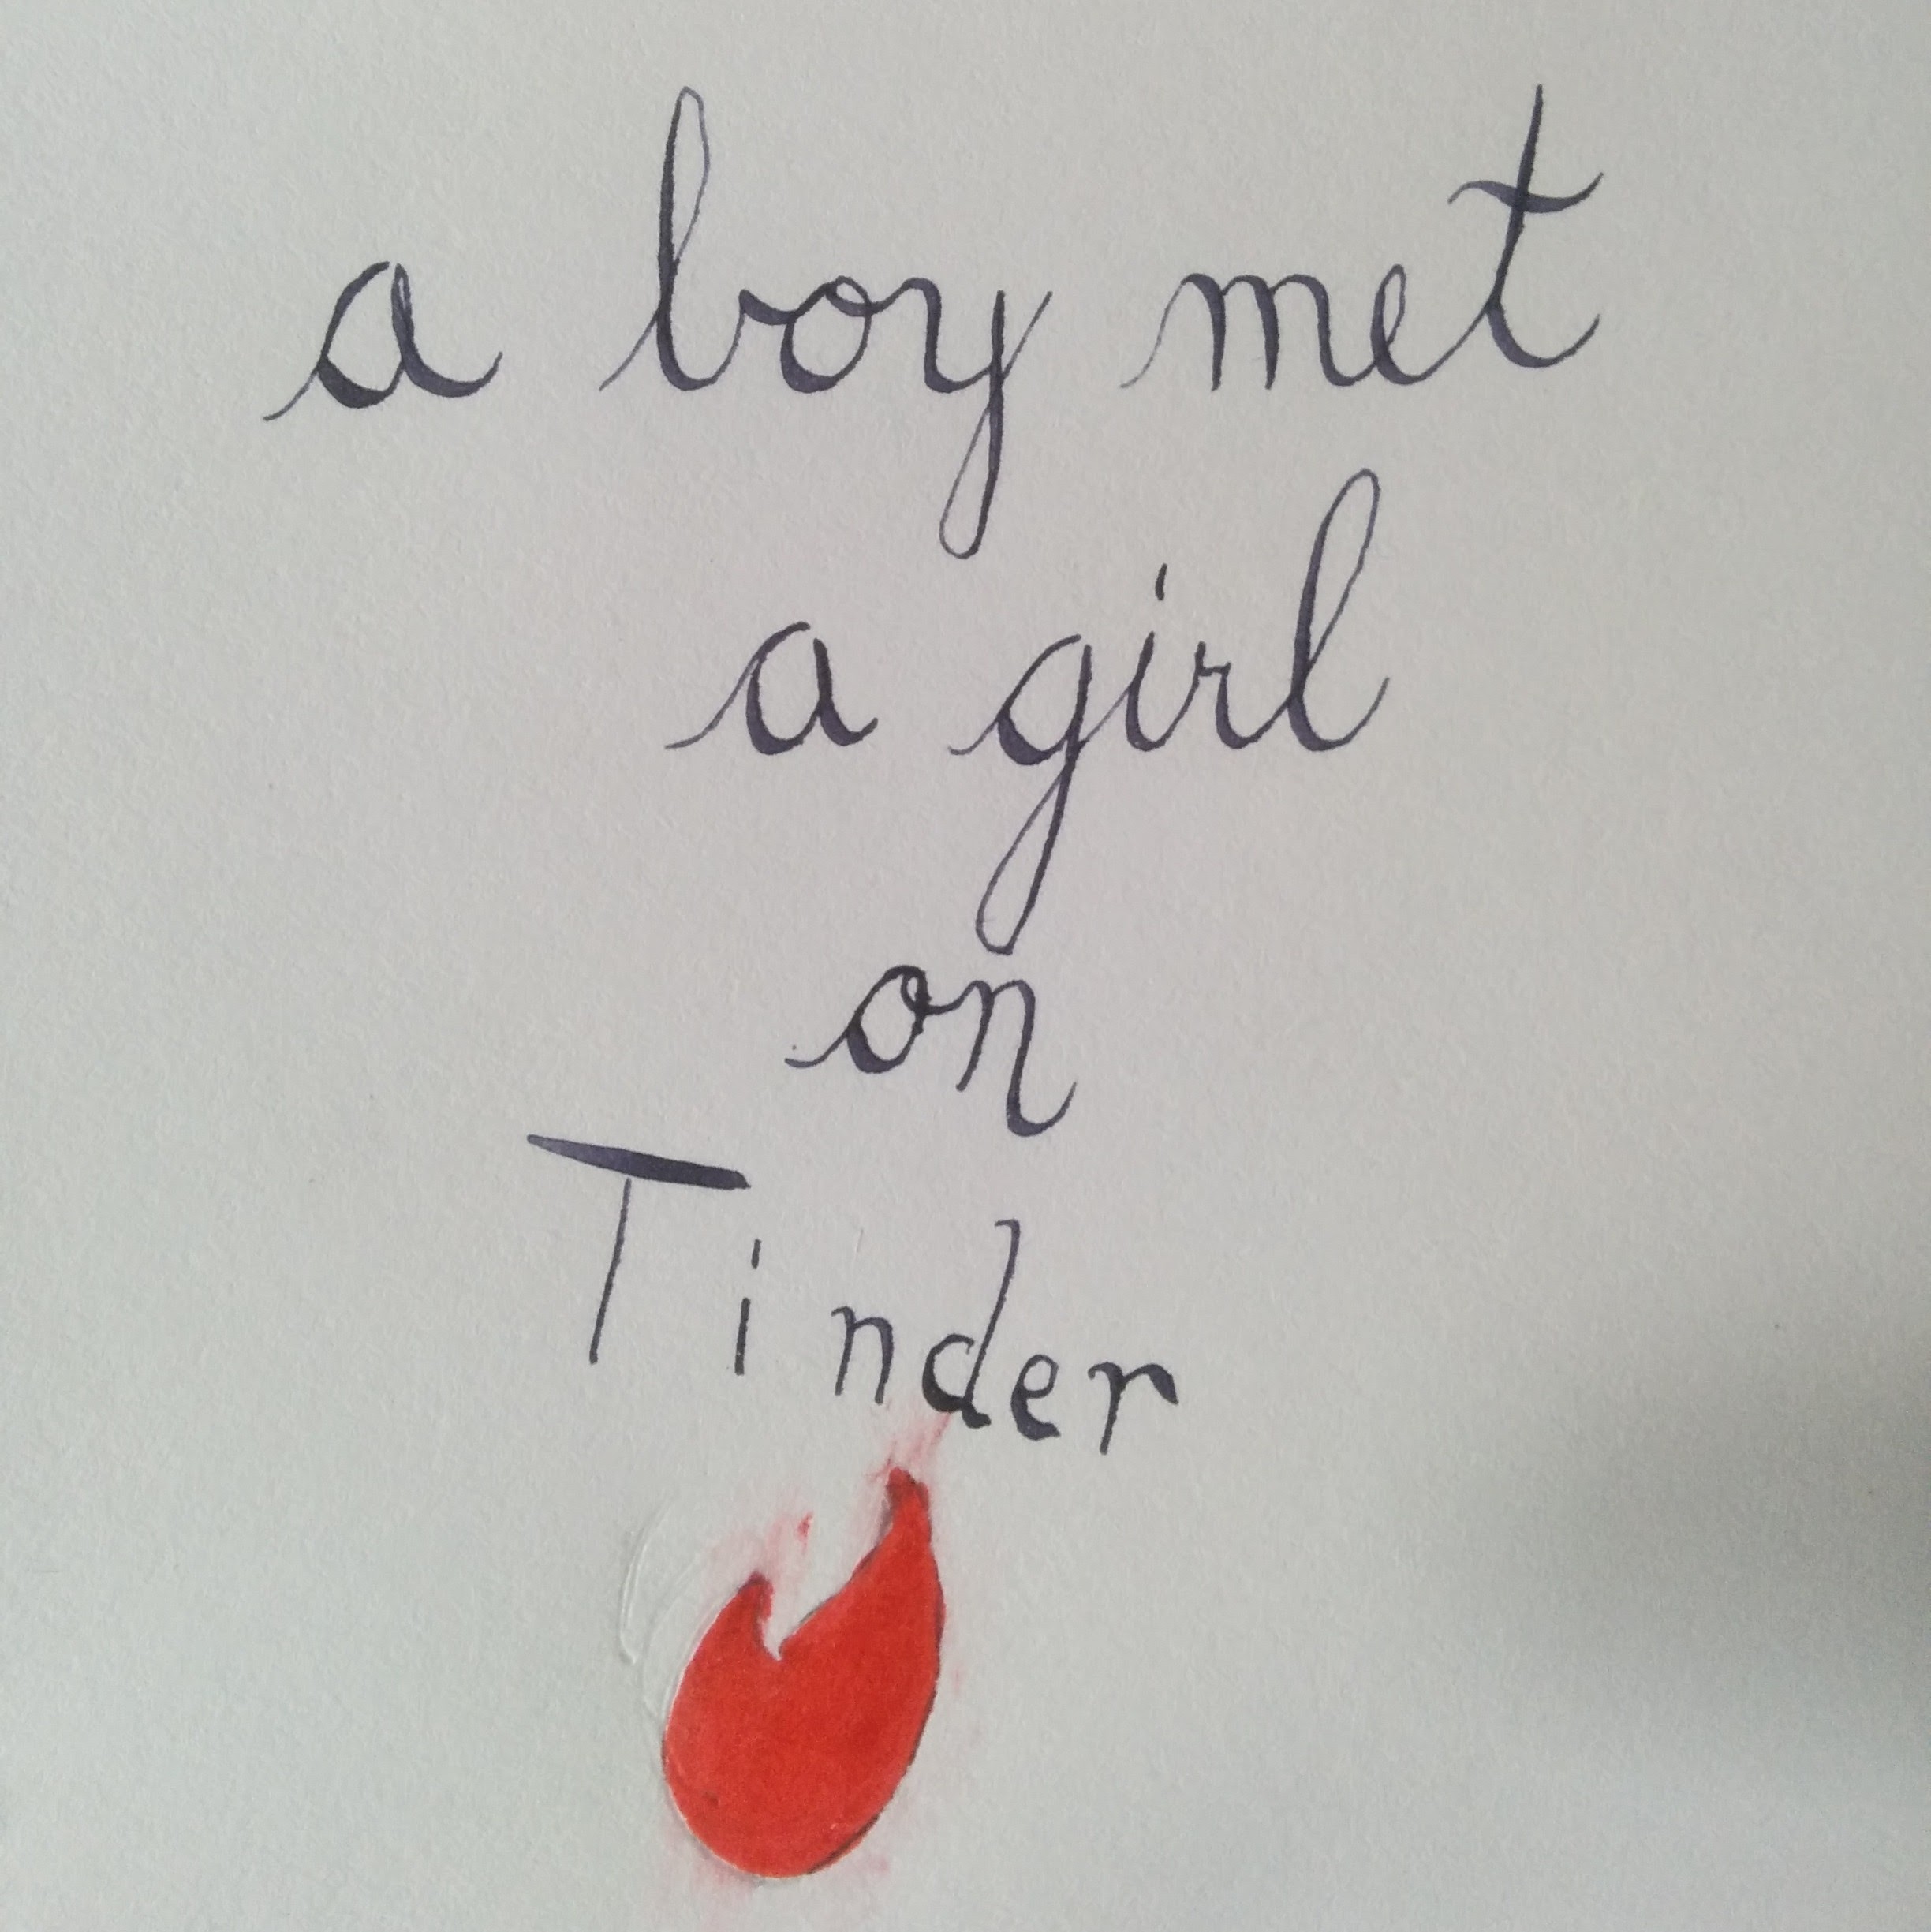 a boy met
a girl
on
Tinder